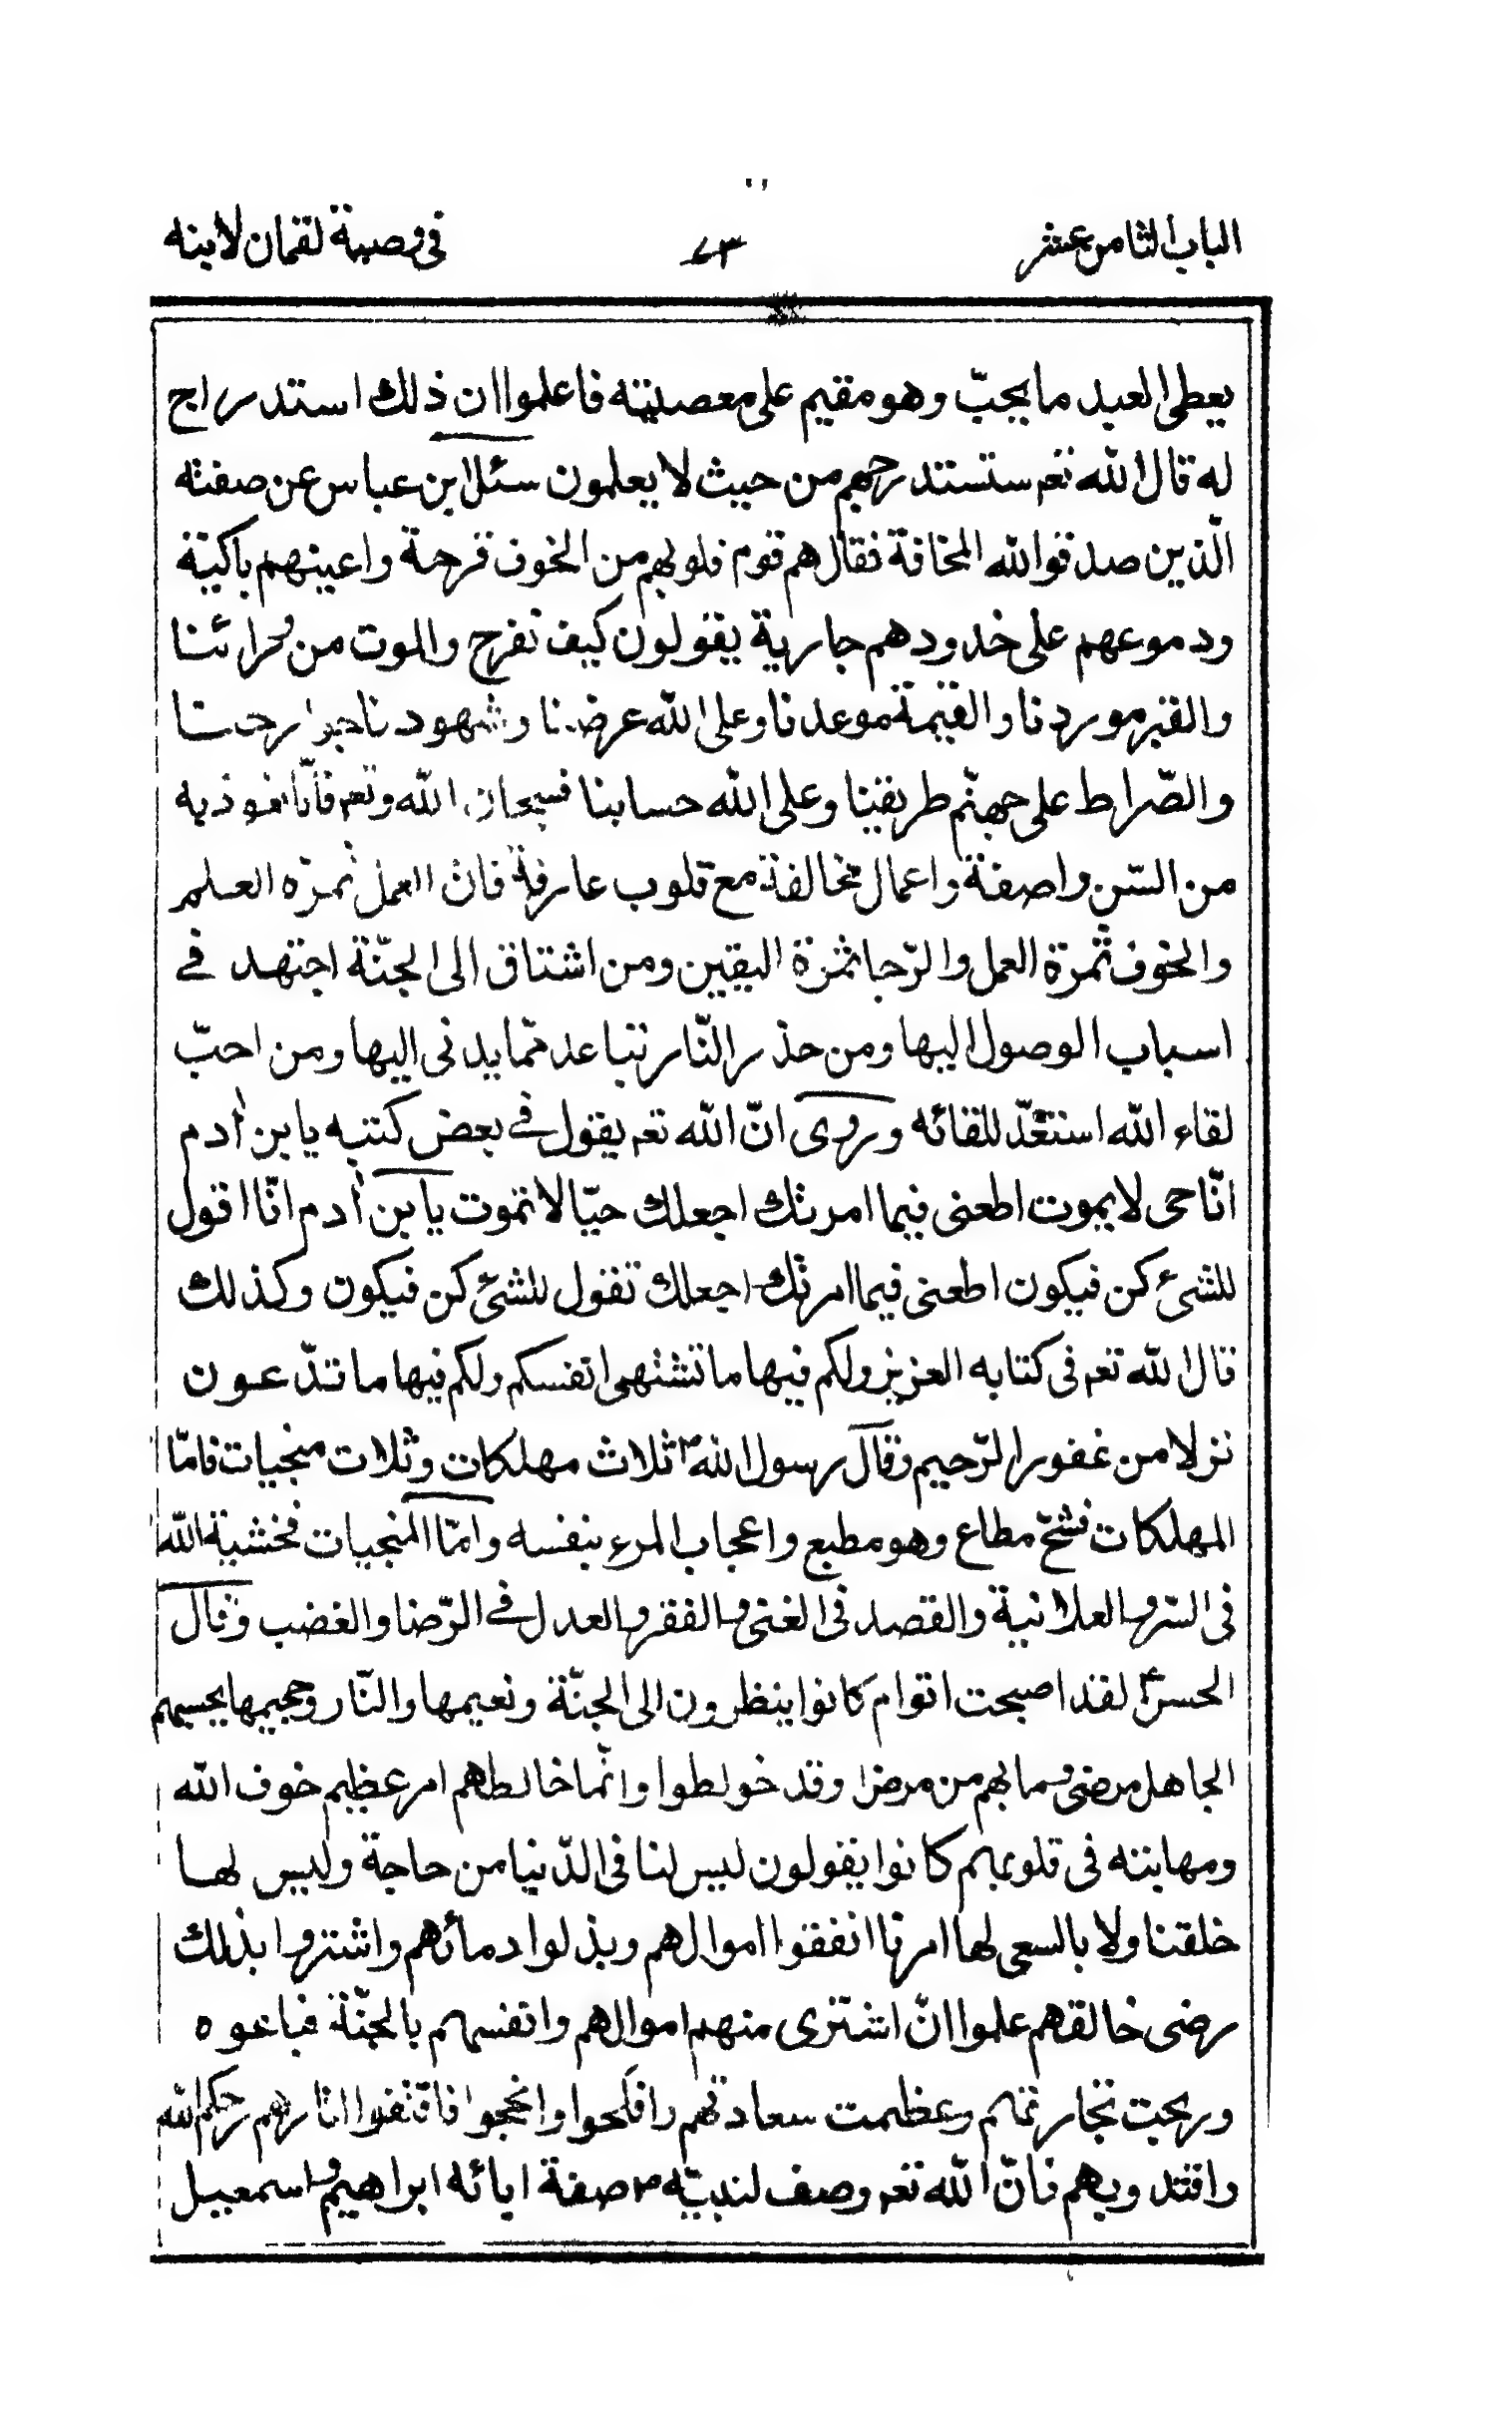 الباب الثامن عشر
٧٣
في وصية لقمان لابنه
يعطى العبد ما يحبّ وهو مقيم على معصيته فاعلموا ان ذلك استدراج
له قال الله تعم سنستدرجهم من حيث لا يعلمون سئل ابن عباس عن صفته
الّذين صدقوا الله المخافة فقال هم قوم قلوبهم من الخوف قرحة واعينهم باكية
ودموعهم على خدودهم جارية يقولون كيف نفرح والموت من ورائنا
والقبر موردنا والقيمة موعدنا وعلى الله عرضنا وشهودنا جوارحنا
والصّراط على جهنّم طريقنا وعلى الله حسابنا فسبحان الله وتعم فانّا نعوذ به
من السن واصفة واعمال مخالفة مع قلوب عارفة فان العمل ثمرة العلم
والخوف ثمرة العمل والرّجا ثمرة اليقين ومن اشتاق الى الجنّة اجتهد في
اسباب الوصول اليها ومن حذر النّار تباعد ممّا يدنى اليها ومن احبّ
لقاء الله استعدّ للقائه وروى انّ الله تعم يقول في بعض كتبه يابن أدم
انّا حى لا يموت اطعنى فيما امرتك اجعلك حيّا لا تموت يابن أدم انّا اقول
للشئ كن فيكون اطعنى فيما امرتك اجعلك تقول للشئ كن فيكون وكذلك
قال الله تعم فى كتابه العزيز ولكم فيها ما تشتهى انفسكم ولكم فيها ما تدّعون
نزلا من غفور الرّحيم وقال رسول الله ص ثلاث مهلكات وثلاث منجيات فامّا
المهلكات فشحّ مطاع وهو مطبع واعجاب المرء بنفسه وامّا المنجيات فخشية الله
فى السّر والعلانية والقصد فى الغنى والفقر والعدل في الرّضا والغضب وقال
الحسن ع لقد اصبحت اقوام كانوا ينظرون الى الجنّة ونعيمها والنّار وجحيمها يحسبهم
الجاهل مرضى وما بهم من مرض او قد خولطوا وانّما خالطهم امر عظيم خوف الله
ومهابته فى قلوبهم كانوا يقولون ليس لنا فى الدّنيا من حاجة وليس لها
خلقنا ولا بالسعى لها امرنا انفقوا اموالهم وبذلوا دمائهم واشتروا بذلك
رضى خالقهم علموا انّ اشترى منهم اموالهم وانفسهم بالجنّة فباعوه
وربحت تجارتهم وعظمت سعادتهم وافلحوا وانجحوا فاقتفوا اثارهم رحمكم الله
واقتدوا بهم فانّ الله تعم وصف لنبيّه ص صفة ابائه ابراهيم واسمعيل